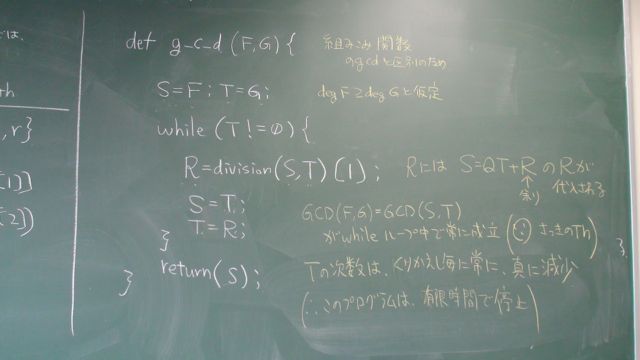 では、
th
,r}
[1]]
[2])
def g_c_d (F,G) { 組み込み関数
のgcdと区別のため
S=F; T=G; deg F≧deg Gと仮定
while (T!=0) {
R=division(S,T)[1]; Rには S=QT+R のRが
↑ 代入される
余り
S=T; GCD(F,G)=GCD(S,T)
T=R; がwhileループ中で常に成立 (∵ さっきのTh)
} Tの次数は、くりかえし毎に常に、真に減少
return(S);
} (∴このプログラムは、有限時間で停止)
}